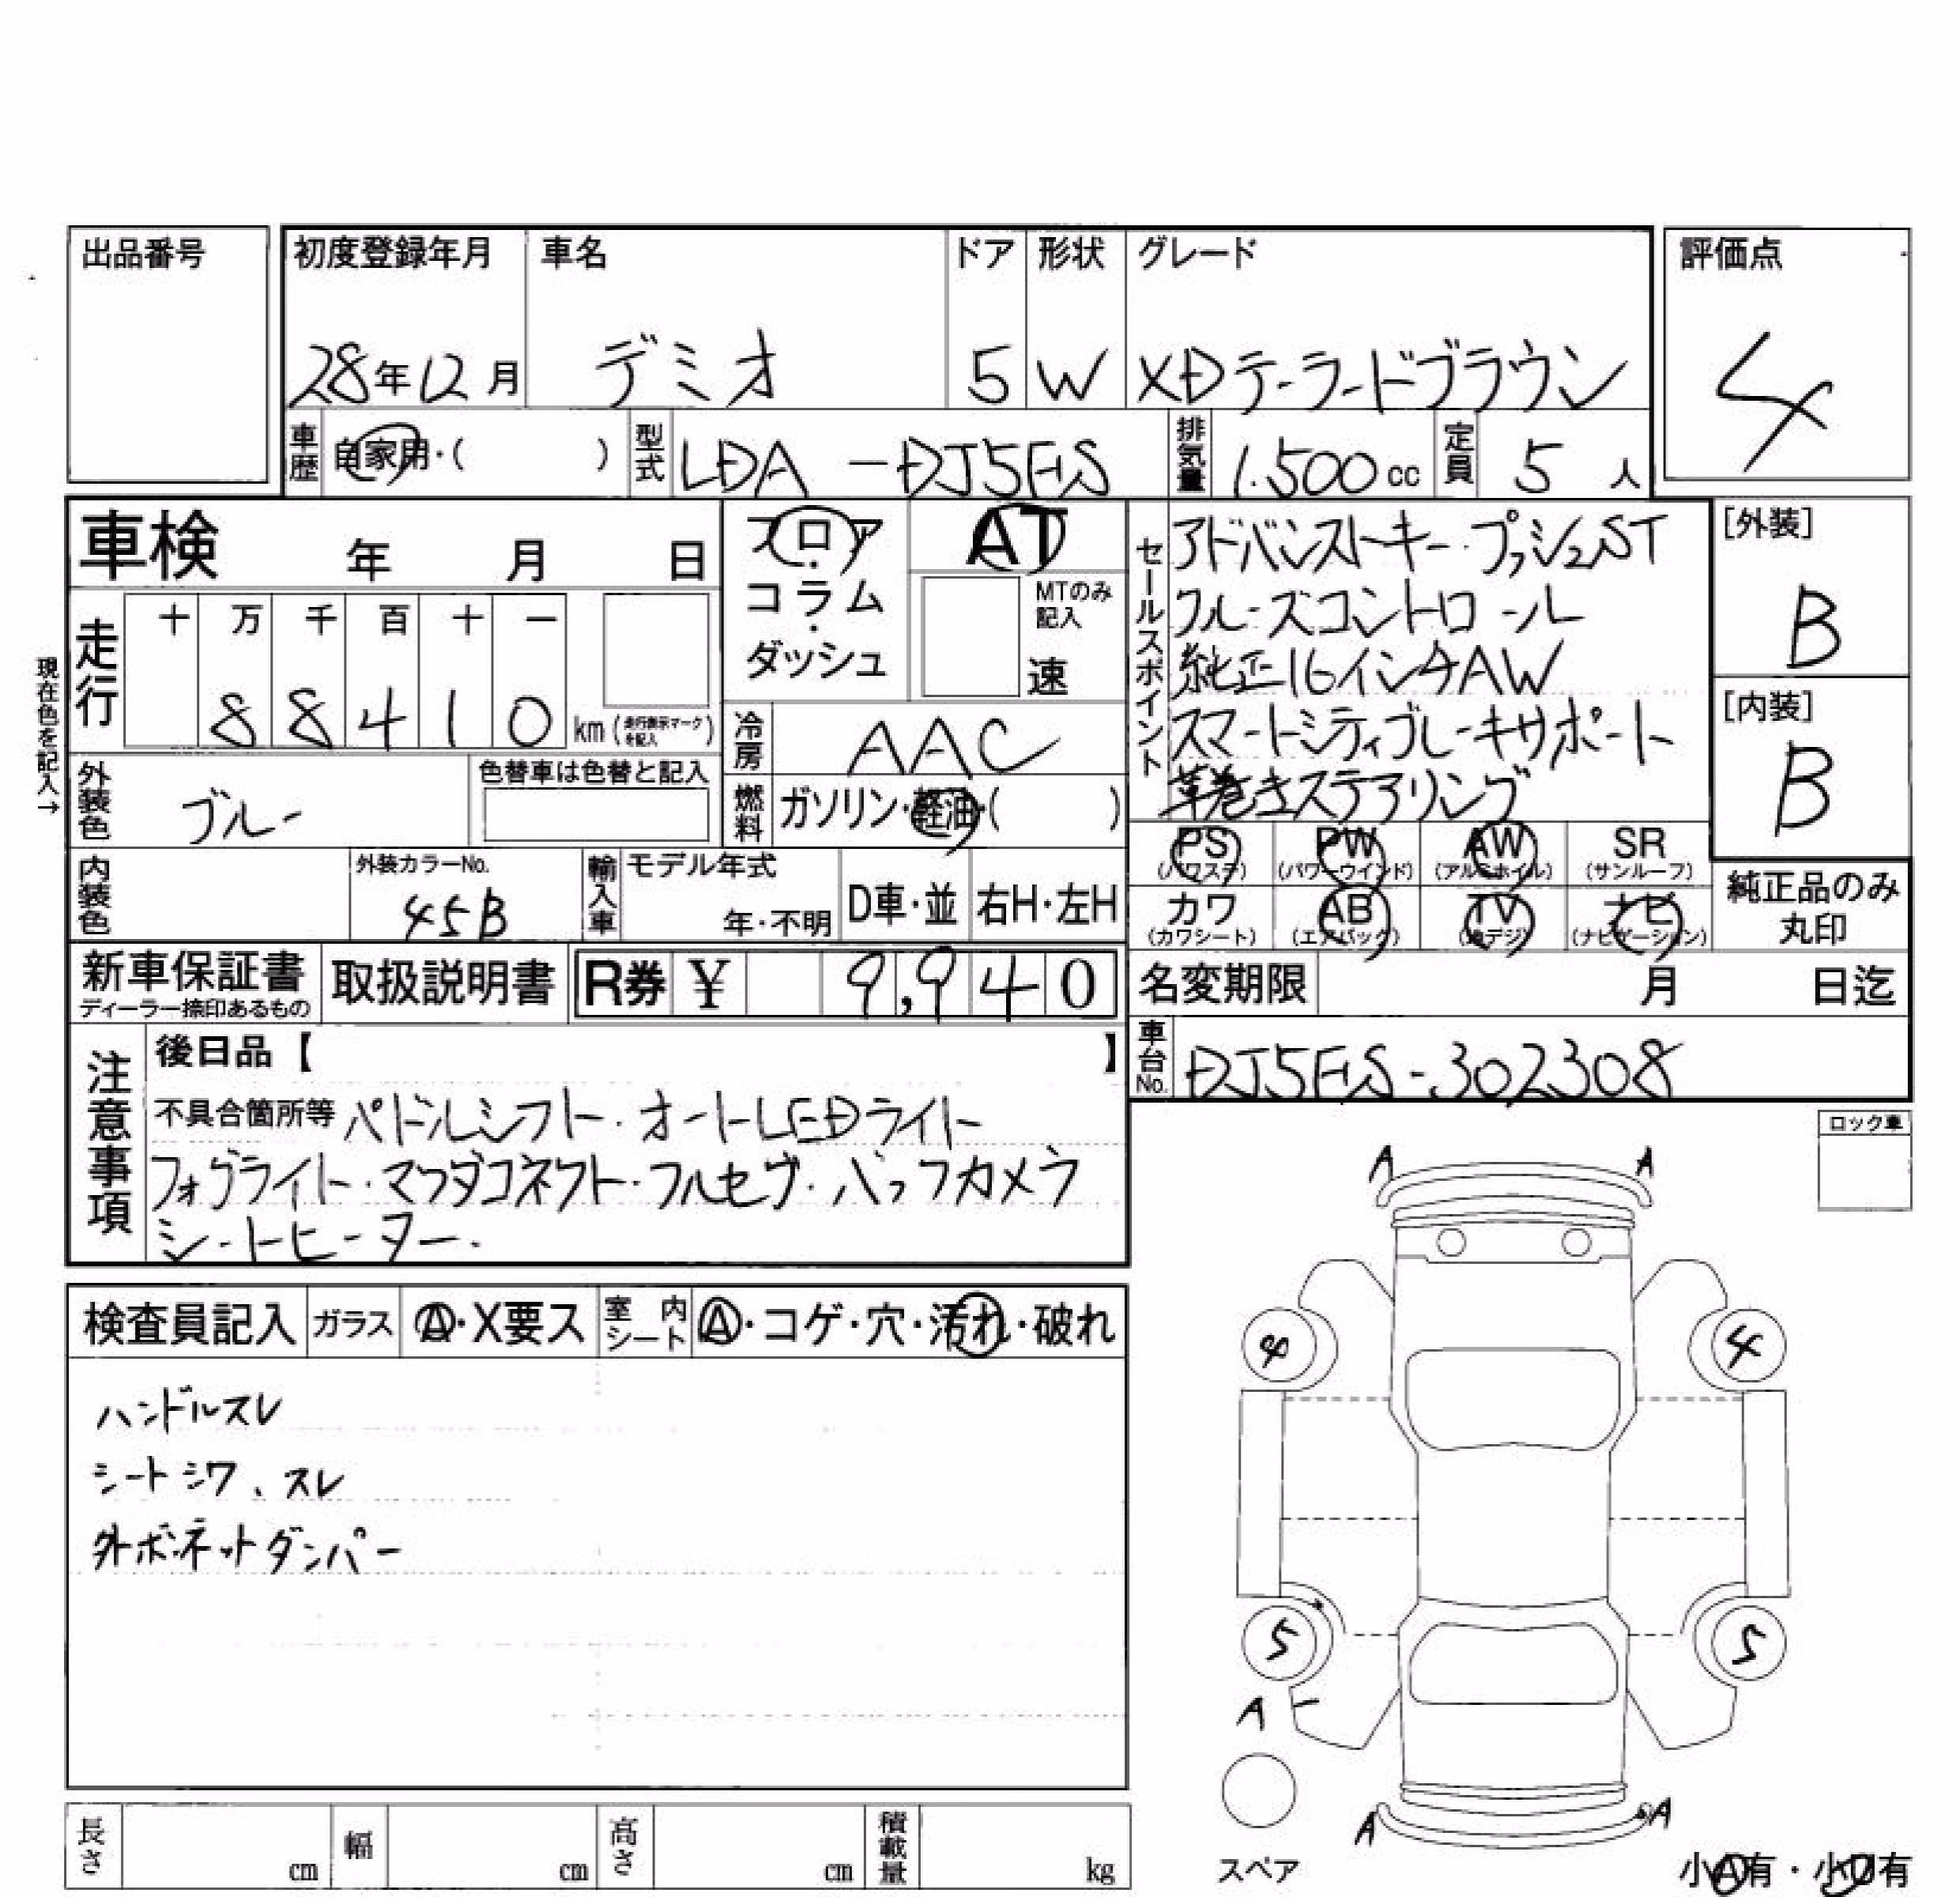 出品番号
初度登録年月 車名 ドア 形状 グレード 評価点
28年12月 デミオ 5 W XDテーラードブラウン 4
車歴 自家用・( ) 型式 LDA-DJ5FS 排気量 1.500cc 定員 5人
車検 年 月 日
フロア・コラム・ダッシュ
AT
MTのみ記入
速
セールスポイント
アドバンストキー・プッシュST
クルーズコントロール
純正16インチAW
スマートシティブレーキサポート
革巻きステアリング
[外装]
B
[内装]
B
現在色を記入→
走行 十 万 千 百 十 一
88410 km (走行表示マークを記入)
冷房 AAC
外装色 ブルー 色替車は色替と記入
燃料 ガソリン・軽油・( )
内装色 外装カラーNo. 45B
輸入車 モデル年式 年・不明 D車・並 右H・左H
PS (パワステ) PW (パワーウインド) AW (アルミホイル) SR (サンルーフ)
カワ (カワシート) AB (エアバック) TV (地デジ) ナビ (ナビゲーション)
純正品のみ
丸印
新車保証書 ディーラー捺印あるもの 取扱説明書 R券 ¥ 9,940
名変期限 月 日迄
車台No. DJ5FS-302308
注意事項
後日品【 】
不具合箇所等 パドルシフト・オートLEDライト
フォグライト・マツダコネクト・フルセグ・バックカメラ
シートヒーター.
ロック車
A A
検査員記入 ガラス A・X要ス 室内シート A・コゲ・穴・汚れ・破れ
4 4
ハンドルスレ
シートシワ、スレ
外ボンネットダンパー
5 5
A
A A
長さ cm 幅 cm 高さ cm 積載量 kg
スペア
小A有・小U有